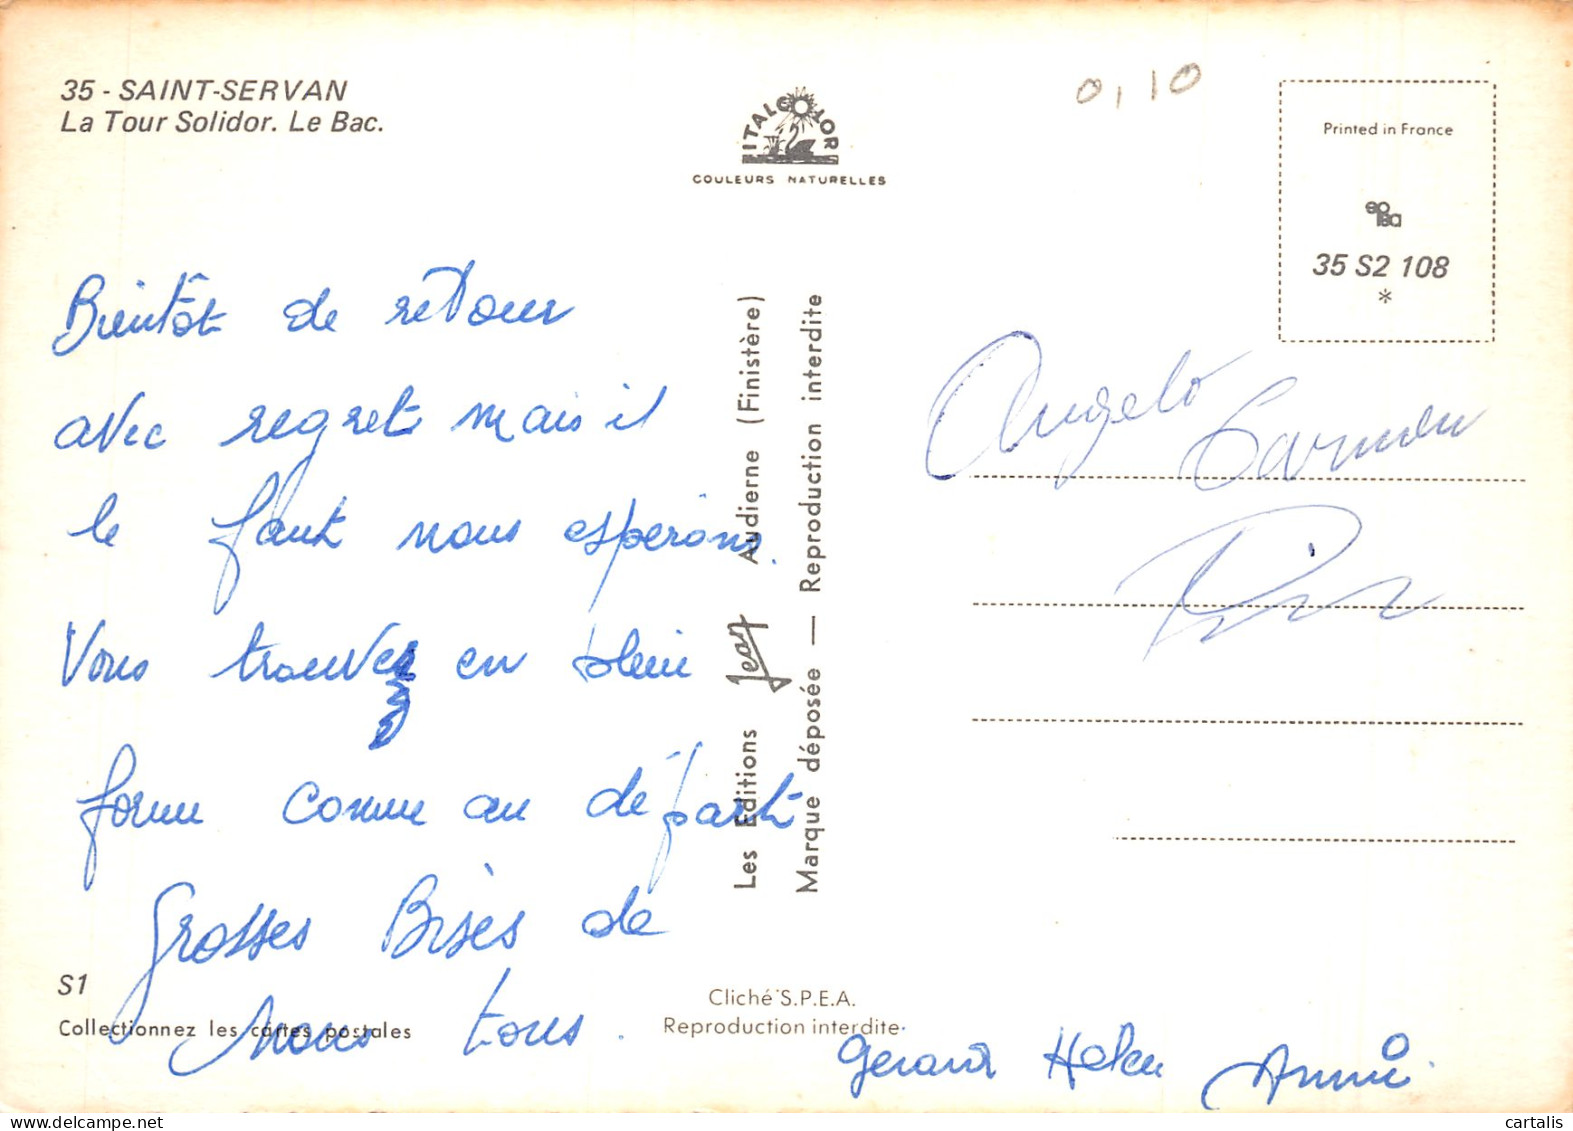 35 - SAINT-SERVAN
La Tour Solidor. Le Bac.
ITALCOLOR
COULEURS NATURELLES
0,10
Printed in France
35 S2 108
*
Bientôt de retour
avec regret mais il
le faut nous espérons.
Vous trouver en pleine
forme comme au départ
Grosses Bises de
nous tous.
Gerard Helen Annie
Angelo Carmen
Les Editions Jean Audierne (Finistère)
Marque déposée — Reproduction interdite
S1
Collectionnez les cartes postales
Cliché S.P.E.A.
Reproduction interdite.
cartalis